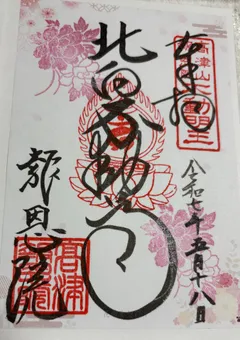 奉拝
北向不動
令和七年五月十八日
報恩院
高津